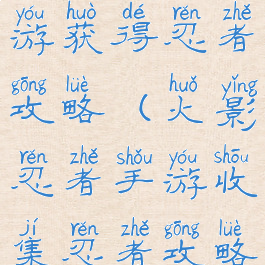 yóu huò dé rěn zhě
游获得忍者
gōng lüè huǒ yǐng
攻略（火影
rěn zhě shǒu yóu shōu
忍者手游收
jí rěn zhě gōng lüè
集忍者攻略